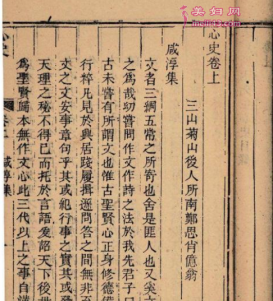 心史卷上
咸淳集
三山菊山後人所南鄭思肖億翁
文者三綱五常之所寄也舍是匪人也又奚文
之爲哉切嘗問作文作詩之法於我先君子曰
古未嘗有所謂文也惟古聖賢心正身修德備
行粹凡見於興居踐履揖遜問答之間無非至
文之文安事章句乎其或紀行事之實其或發
天理之秘不得已而托於言語爰詔天下後世
爲聖賢歸本無作文心此三代以上之事自漢
咸淳集
美妇网